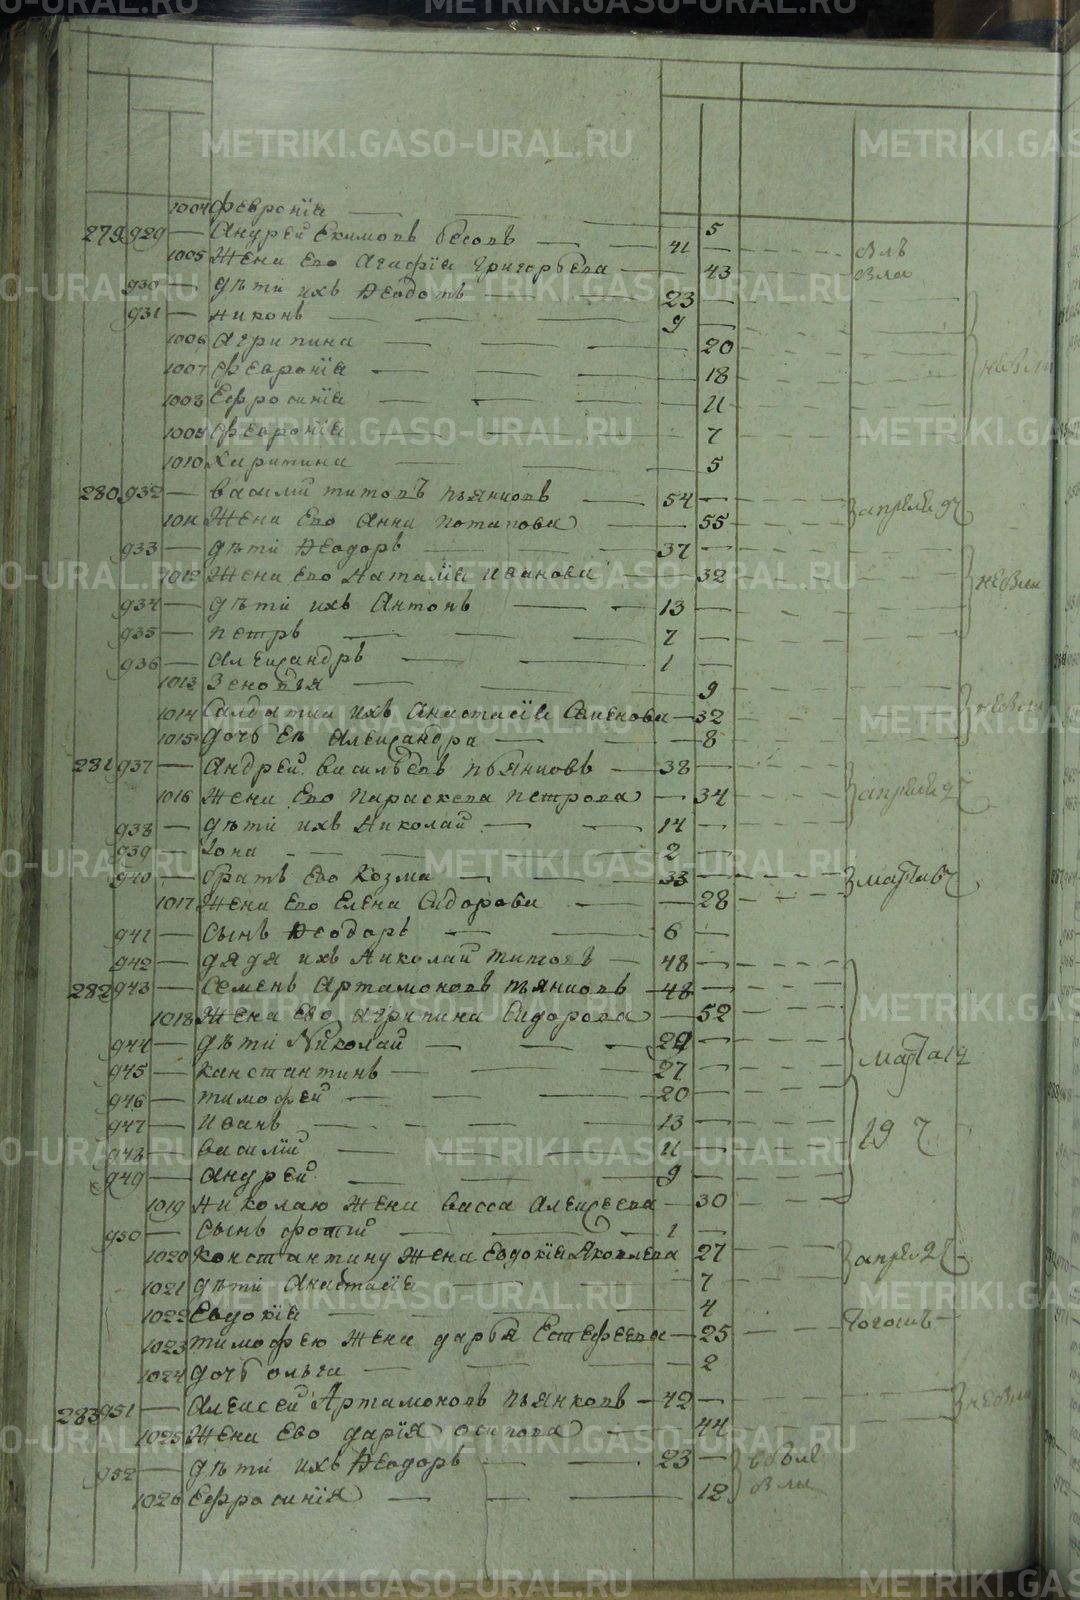 1004 Феврониа — 5
279 929 — Андрей Екимовъ Бесовъ — 41 — былъ
1005 Жена Ево Агафиа Григорьева — 43 была
930 — дѣти ихъ Ѳеодотъ — 23 —
931 — Никонъ — 9 —
1006 Агрипина — 20
1007 Феврониа — 18 небыли
1008 Ефросиниа — 11
1009 Феврониа — 7
1010 Харитина — 5
280 932 — Василий Титовъ Пьянковъ — 54 —
1011 Жена Ево Анна Потапова — 55 апреля 9
933 — дѣти Ѳеодоръ — 37 —
1012 Жена Ево Наталиа Иванова — 32 небыли
934 — дѣти ихъ Антонъ — 13 —
935 — Петръ — 7 —
936 — Александръ — 1 —
1013 Зеновья — 9
1014 Салдатка ихъ Анастасиа Семенова — 32 небыли
1015 дочь Еѣ Александра — 8
281 937 — Андрей Васильевъ Пьянковъ — 38 —
1016 Жена Ево Параскева Петрова — 34 апреля 2
938 — дѣти ихъ Николай — 14 —
939 — Iона — 2 —
940 — братъ Ево Козма — 33 — марта 6
1017 Жена Ево Елена Сидорова — 28
941 — сынъ Ѳеодоръ — 6 —
942 — дядя ихъ Николай Титовъ — 48 —
282 943 — Семенъ Артамоновъ Пьянковъ — 48 —
1018 Жена Ево Агрипина Сидорова — 52
944 — дѣти Николай — 29 —
945 — Константинъ — 27 — марта 12
946 — Тимофей — 20 —
947 — Иванъ — 13 —
948 — Василий — 11 — 19
949 — Андрей — 9 —
1019 Николаю Жена Васса Алексеева — 30
950 — сынъ Фотий — 1 —
1020 Константину Жена Евдокиа Яковлева 27 апрел 2
1021 дѣти Анастасиа — 7
1022 Евдокиа — 4
1023 Тимофею Жена Дарья Естефеева — 25
1024 дочь Ольга — 2
283 951 — Алексей Артамоновъ Пьянковъ — 42 — небыли
1025 Жена Ево Дариа Осипова — 44
952 — дѣти ихъ Ѳеодоръ — 23 —
1026 Ефросиния — 12 были